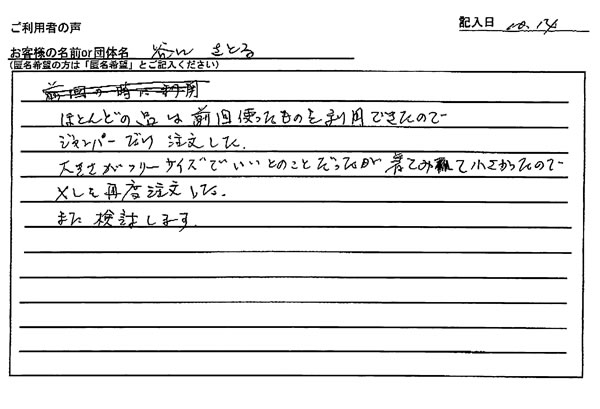 ご利用者の声
記入日 no. 134
お客様の名前or団体名 谷川 さとる
(匿名希望の方は「匿名希望」とご記入ください)
ほとんどの品は前回使ったものを利用できたので
ジャンパーだけ注文した.
大きさがフリーサイズでいいとのことだったが着てみて小さかったので
XLを再度注文した.
また検討します.